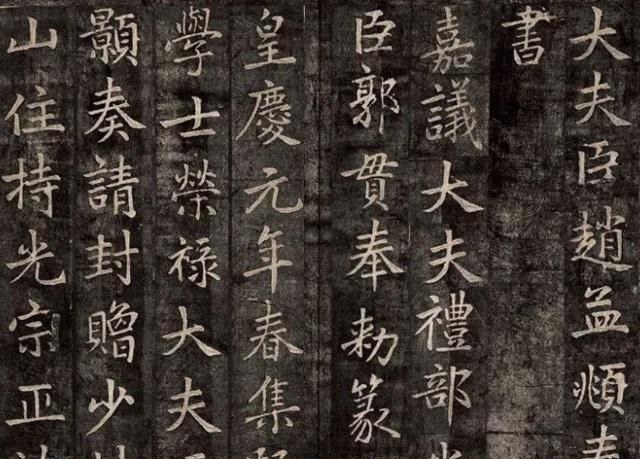 大夫臣趙孟頫奉
書
嘉議大夫禮部尚
臣郭貫奉勑篆
皇慶元年春集賢
學士榮祿大夫
顥奏請封贈少林
山住持光宗正法